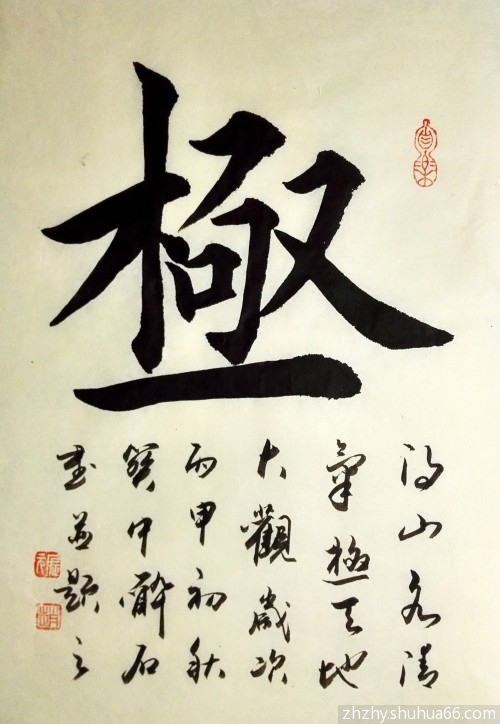 極
得山水清
氣極天地
大觀歲次
丙申初秋
中醉石
書並題之
zhzhy.shuhua66.com